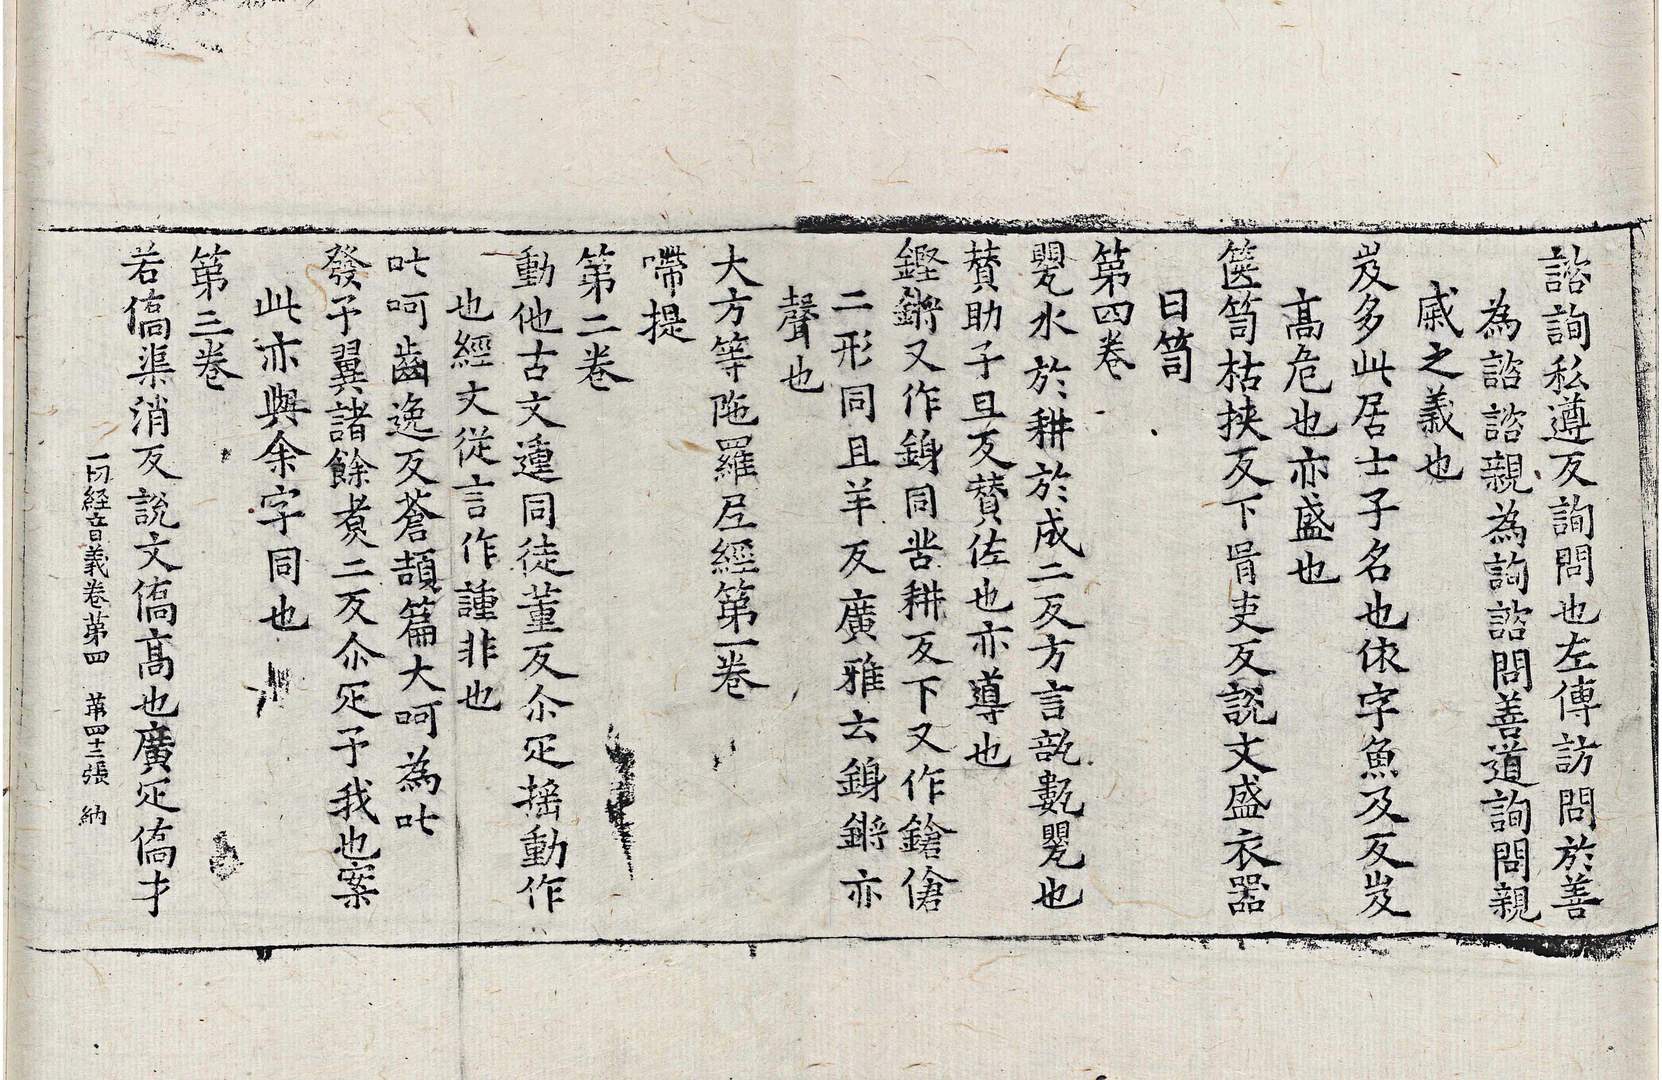 諮詢私遵反詢問也左傳訪問於善
為諮諮親為詢諮問善道詢問親
戚之義也
岌多此居士子名也依字魚及反岌
髙危也亦盛也
篋笥枯挾反下胥吏反說文盛衣器
曰笥
第四卷
甖水於耕於成二反方言㼚甖也
賛助子旦反賛佐也亦導也
鏗鏘又作鋗同苦耕反下又作鎗傖
二形同且羊反廣雅云鋗鏘亦
聲也
大方等陁羅尼經第一卷
嚌提
第二卷
動他古文運同徒董反尒疋揺動作
也經文従言作諥非也
吐呵齒逸反蒼頡篇大呵為吐
發予翼諸餘煑二反尒疋予我也案
此亦與余字同也
第三卷
若僑渠消反說文僑髙也廣疋僑才
一切経音義卷第四 苐四十三張 納